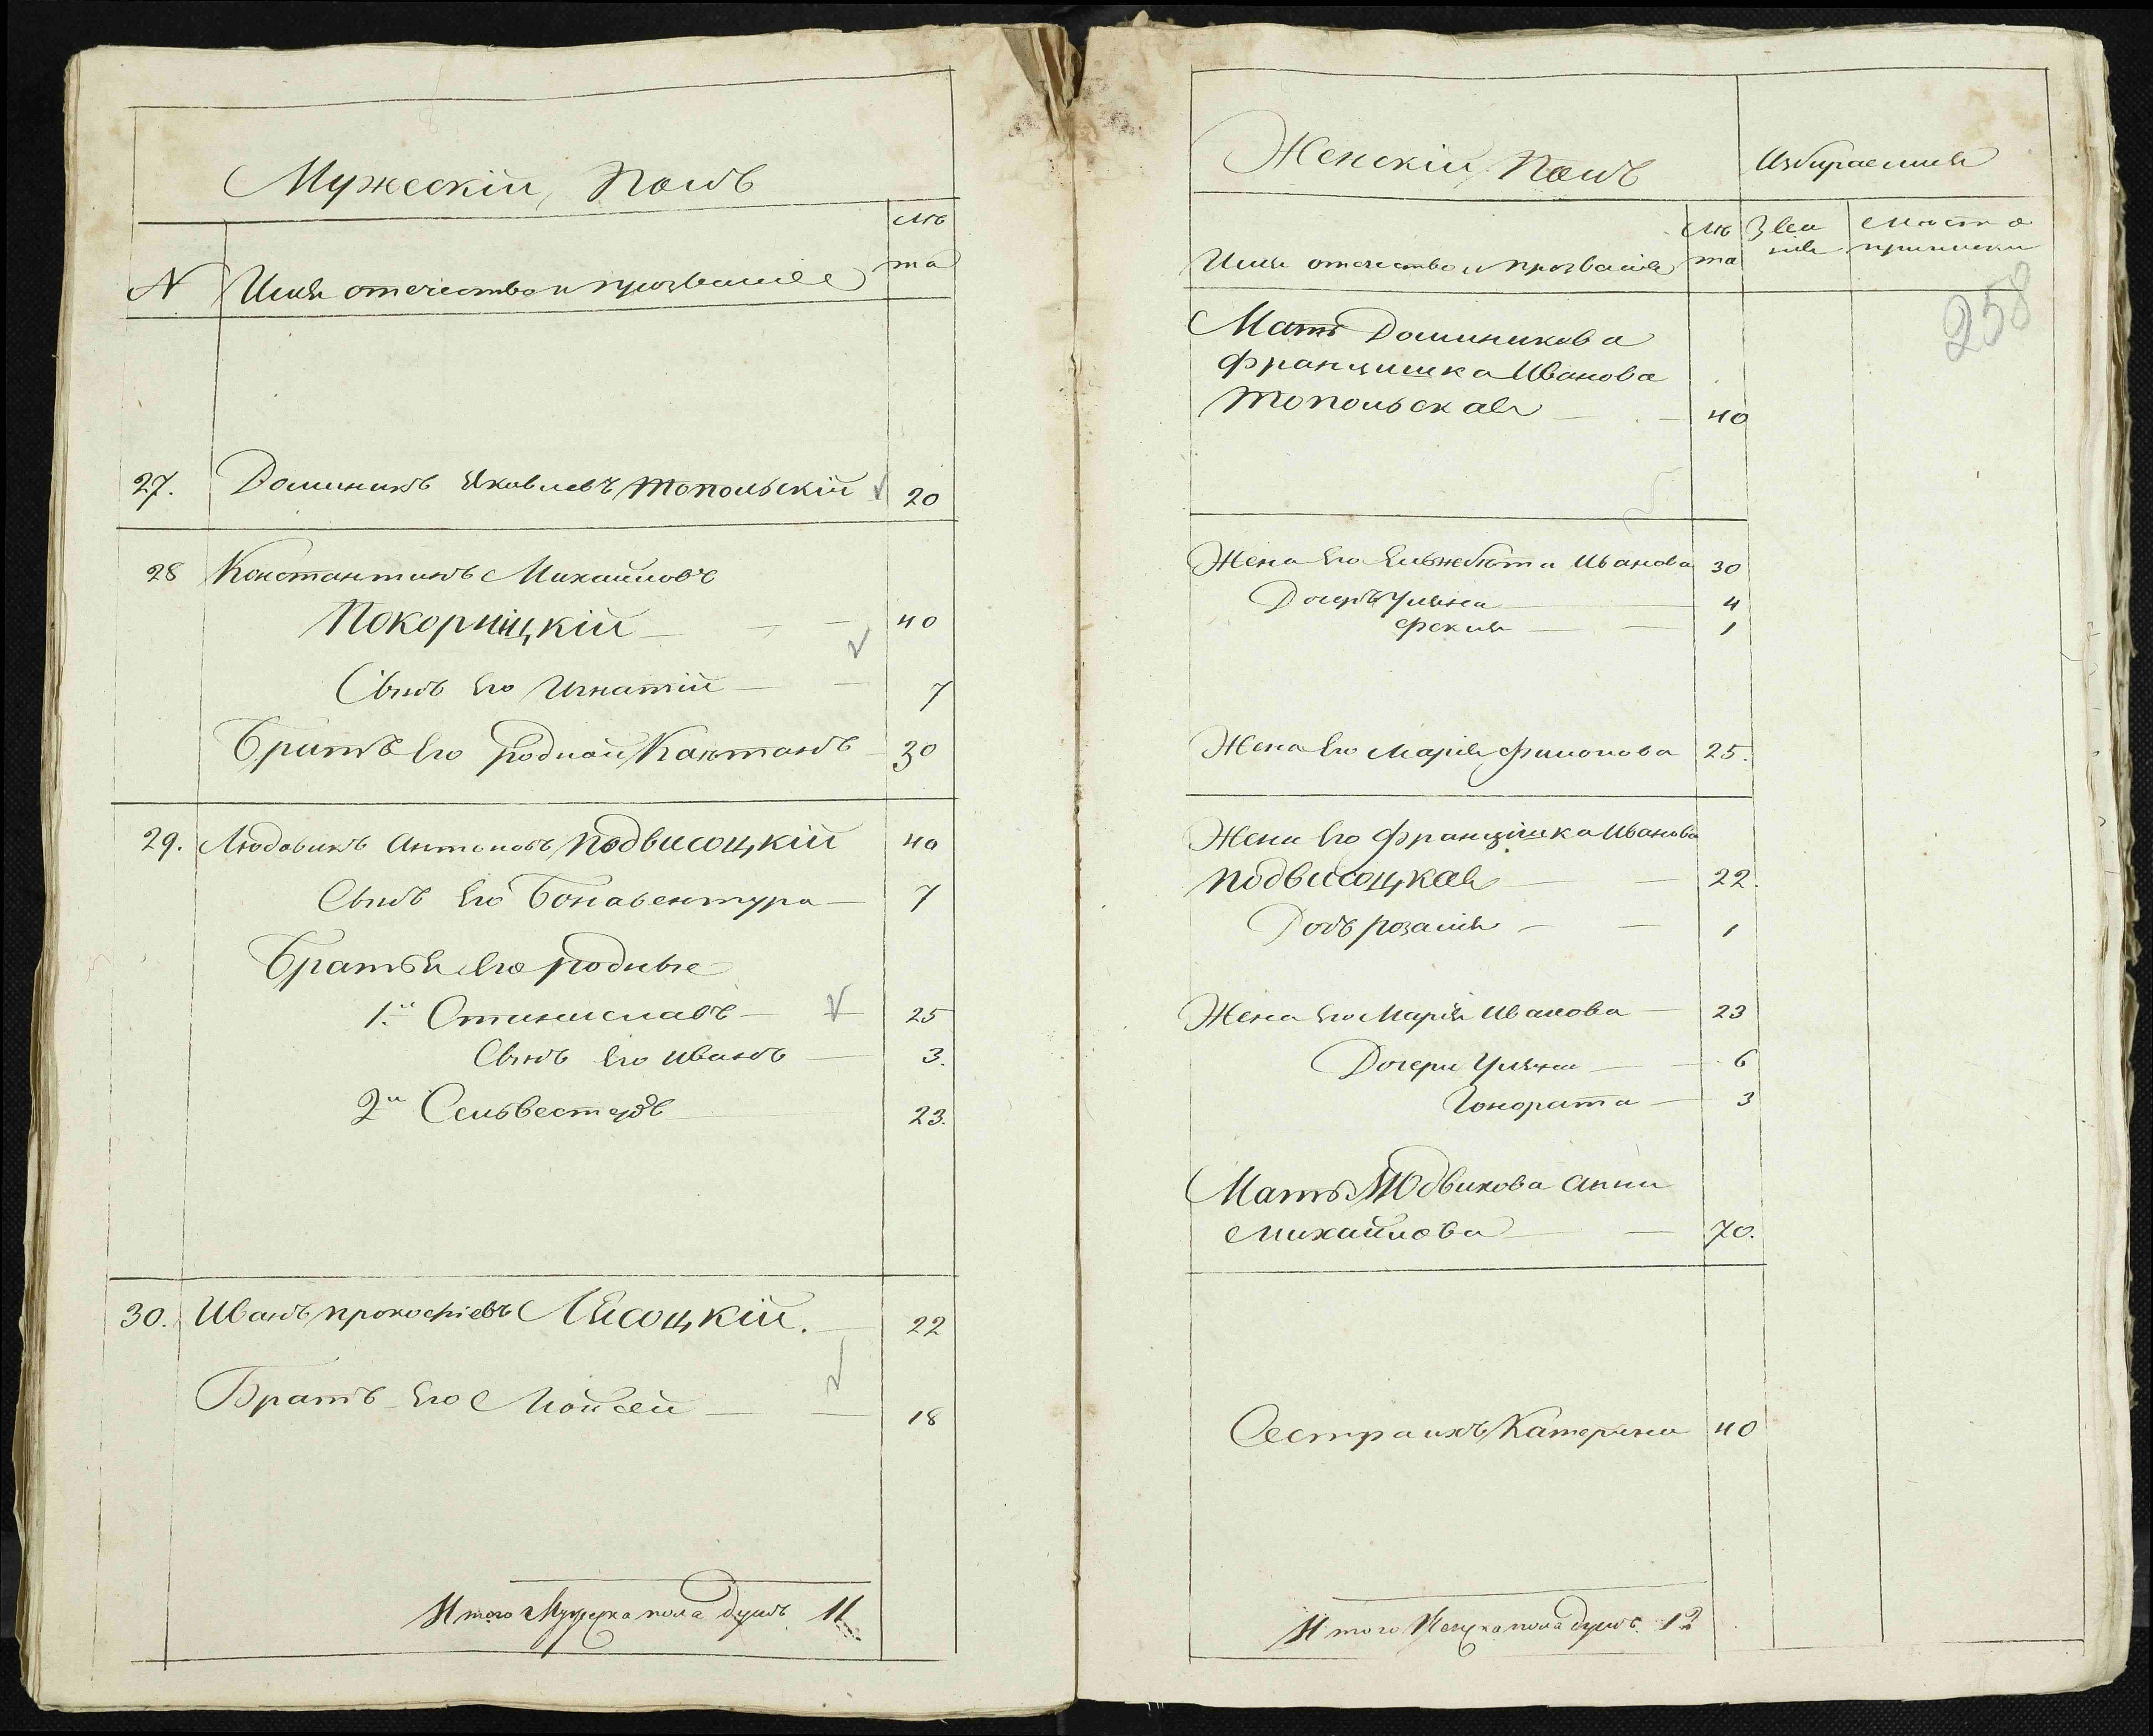 Мужескій Полъ
Лѣ
та
N Имя отечество и прозваніе
27. Доминикъ Яковлевъ Топольскій 20
28 Константинъ Михайловъ
Покорницкій 40
Сынъ Его Игнатій 7
Братъ Его родной Каетанъ 30
29. Людовикъ Антоновъ Подвисоцкій 40
Сынъ Его Бонавентура 7
Братья Его родные
1й Станиславъ 25
Сынъ Его Иванъ 3.
2й Сельвестръ 23.
30. Иванъ Прокофіевъ Лѣсоцкій. 22
Братъ Его Мойсей 18
Итого Мужеска пола душъ 11
Женскій Полъ Избираемыя
Имя отечество и прозваніе Лѣта Званіе Место приписки
258
Мать Доминикова
Францишка Иванова
Топольская 40
Жена Его Ельжбѣта Иванова 30
Дочеръ Уляна 4
Фекля 1
Жена Его Марія Филонова 25.
Жена Его Францѣшка Иванова
Подвисоцкая 22.
Дочь Розалія 1
Жена Его Марія Иванова 23
Дочери Уляна 6
Гонората 3
Мать Людвикова Анна
Михайлова 70.
Сестра ихъ Катерина 40
Итого Женска пола душъ 12